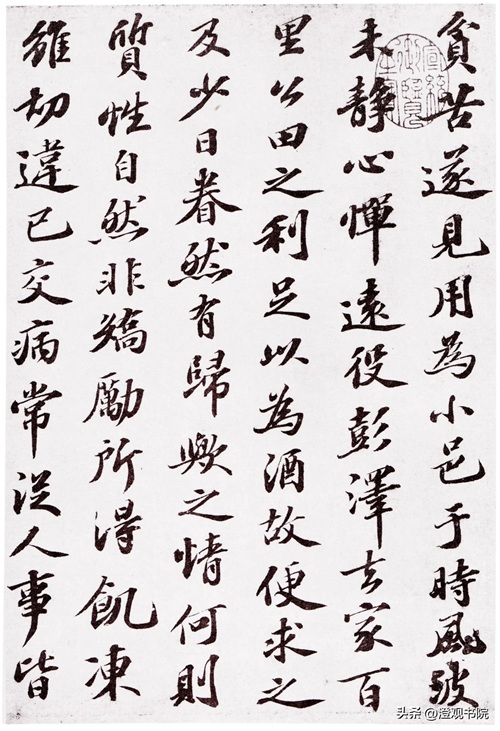 貧苦遂見用為小邑于時風波
未靜心憚遠役彭澤去家百
里公田之利足以為酒故便求之
及少日眷然有歸歟之情何則
質性自然非矯勵所得飢凍
雖切違已交病常從人事皆
宣統御覽之寶
头条 @澄观书院